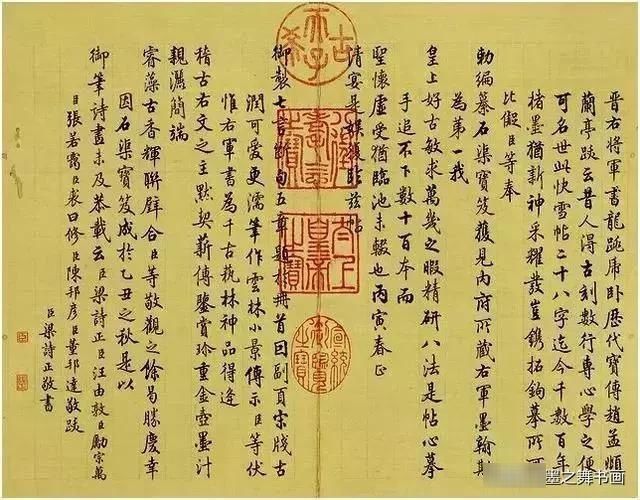 晉右將軍書龍跳虎臥歷代寶傳趙孟頫
蘭亭跋云昔人得古刻數行專心學之便
可名世此快雪帖二十八字迄今千數百年
楮墨猶新神采耀發豈鐫拓鉤摹所可
比儗臣等奉
勅編纂石渠寶笈獲見內府所藏右軍墨翰斯
為第一我
皇上好古敏求萬幾之暇精研八法是帖心摹
手追不下數十百本而
聖懷虛受猶臨池未輟也丙寅春正
清宴是娛復臨茲帖
御製七言斷句五章題於冊首因副頁宋牋古
潤可愛更濡筆作雲林小景傳示臣等伏
惟右軍書為千古執林神品得逢
稽古右文之主默契薪傳鑒賞珍重金壺墨汁
親灑簡端
睿藻古香輝聯璧合臣等敬觀之餘曷勝慶幸
因石渠寶笈成於乙丑之秋是以
御筆詩畫未及恭載云臣梁詩正臣汪由敦臣勵宗萬
臣張若靄臣裘曰修臣陳邦彥臣董邦達敬跋
臣梁詩正敬書
古希天子
八徵耄念之寶
太上皇帝之寶
宣統御覽之寶
墨之舞书画